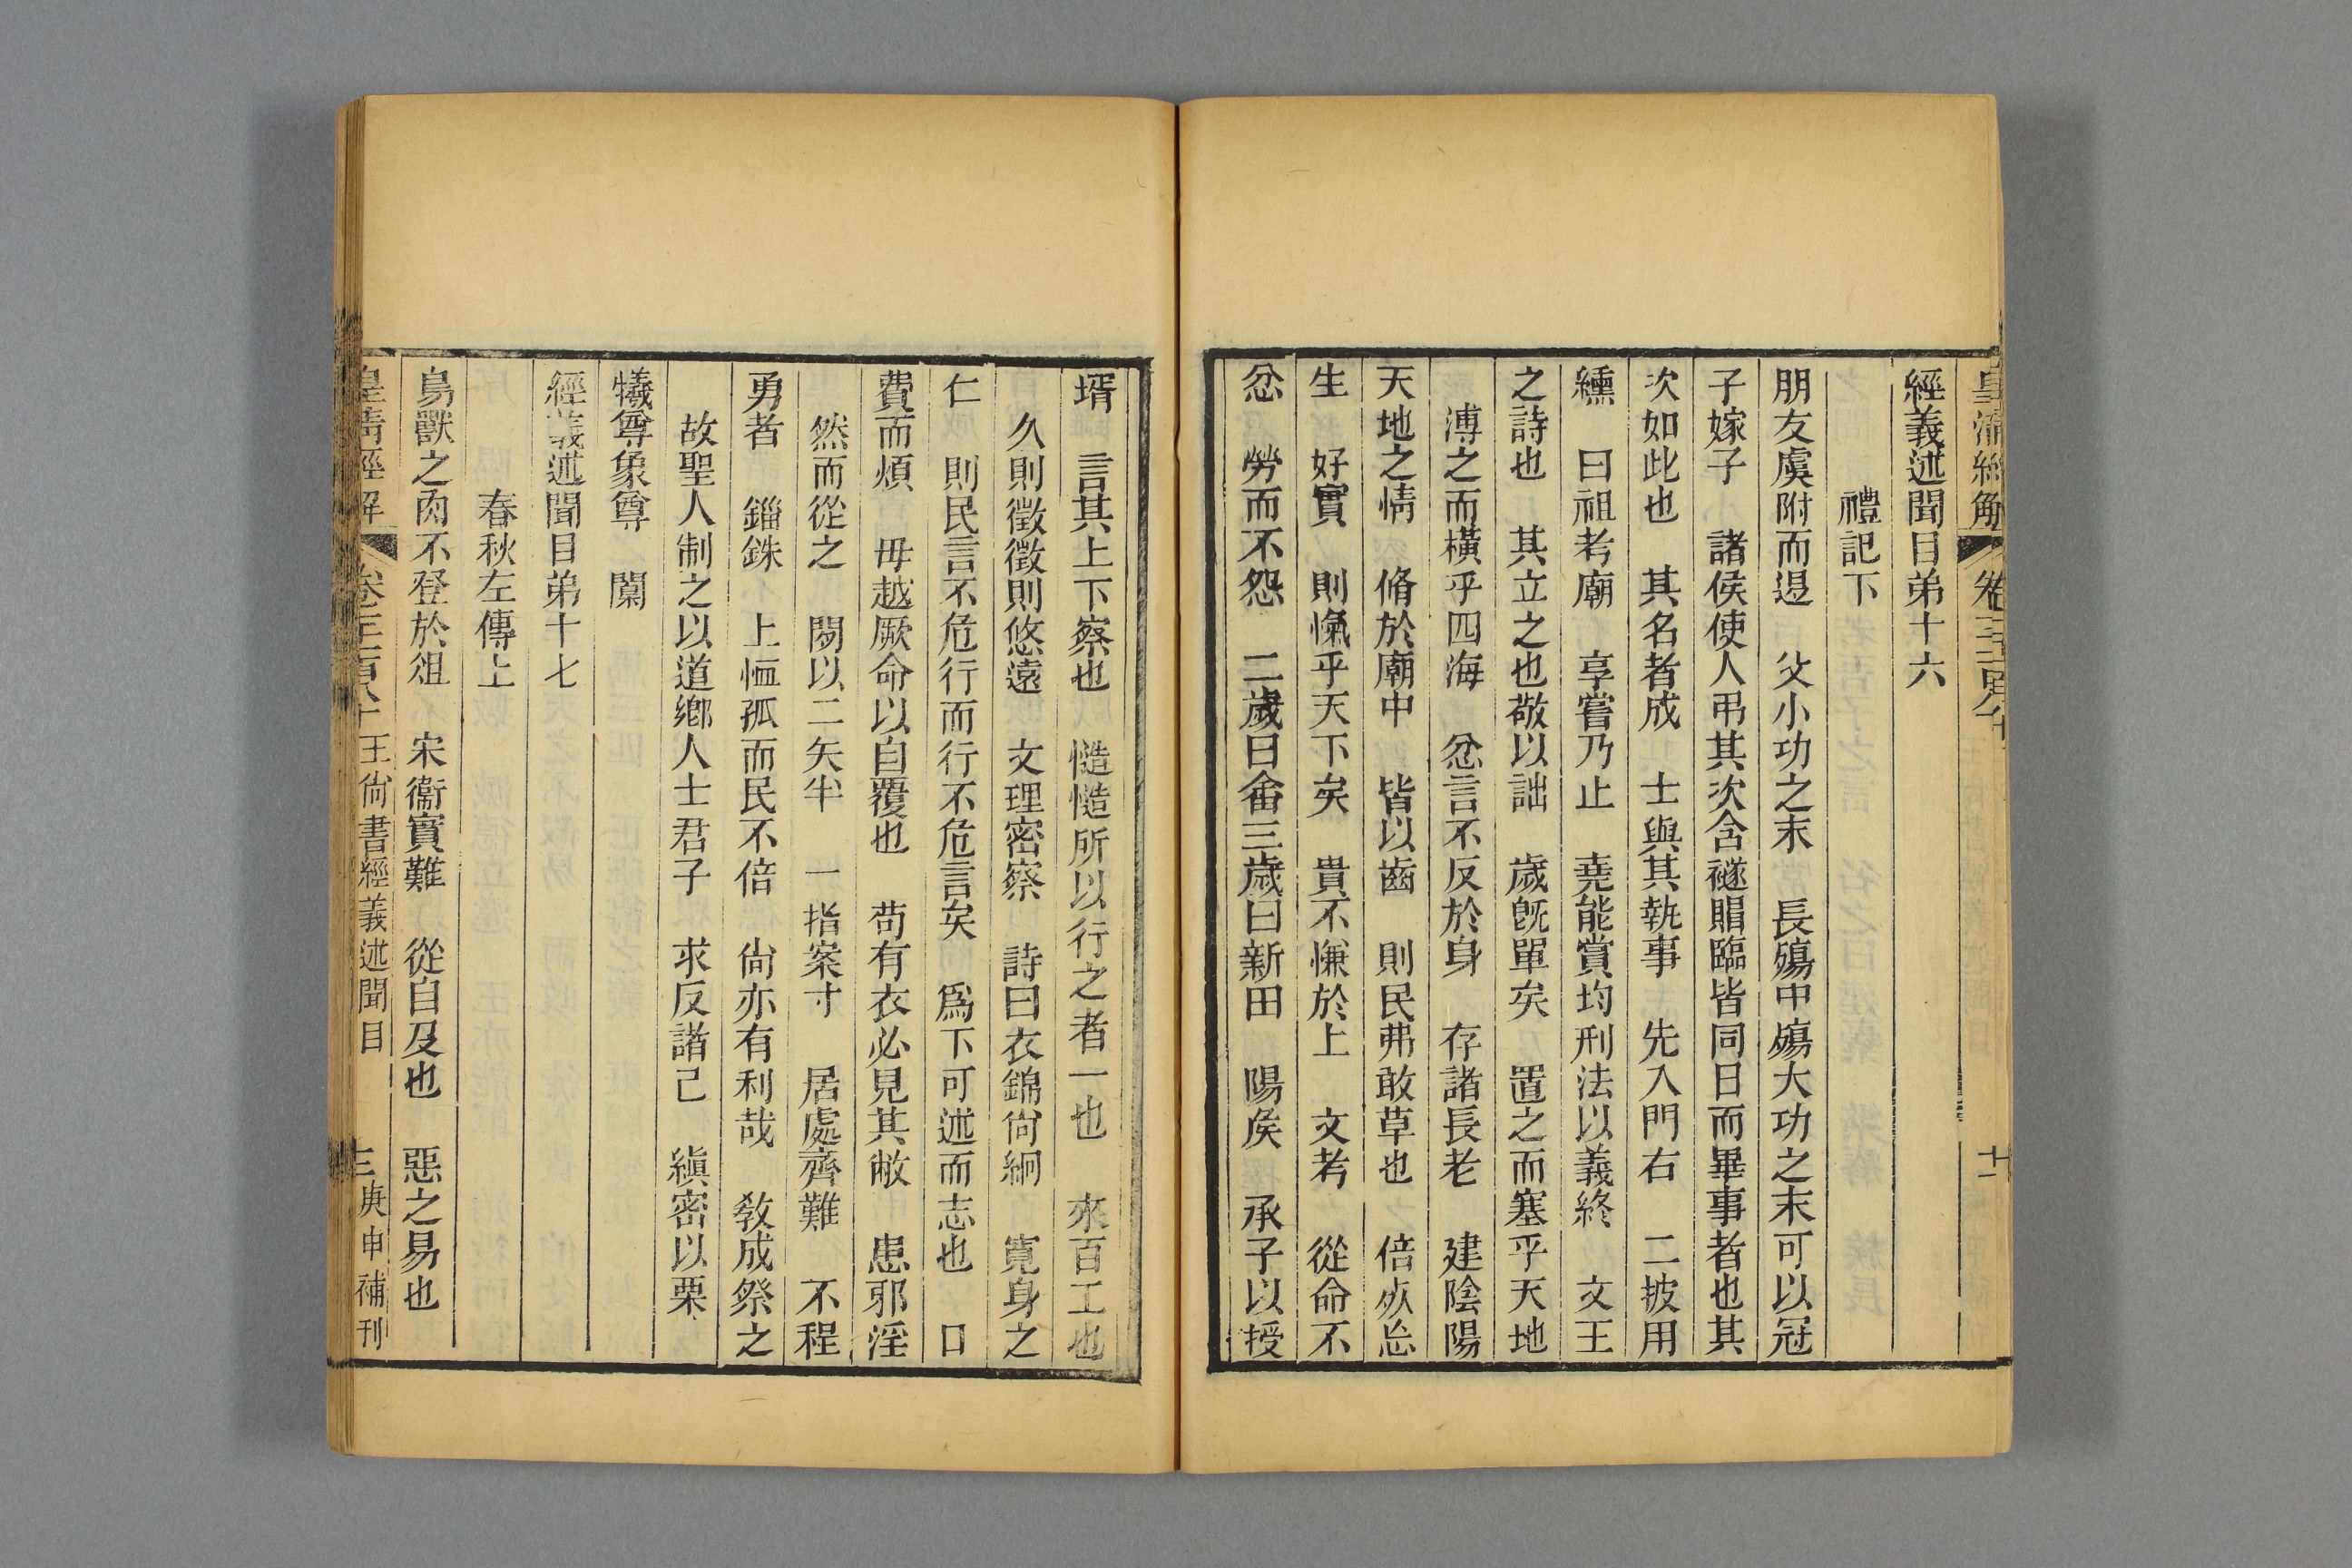 經義述聞目弟十六
禮記下
朋友虞附而退　父小功之末　長殤中殤大功之末可以冠
子嫁子　諸侯使人弔其次含襚賵臨皆同日而畢事者也其
次如此也　其名者成　士與其執事　先入門右　二披用
纁　曰祖考廟　享嘗乃止　堯能賞均刑法以義終　文王
之詩也　其立之也敬以詘　歲旣單矣　置之而塞乎天地
溥之而橫乎四海　忿言不反於身　存諸長老　建陰陽
天地之情　脩於廟中　皆以齒　則民弗敢草也　倍　忘
生　好實　則愾乎天下矣　貴不慊於上　文考　從命不
忿　勞而不怨　二歲曰畬三歲曰新田　陽侯　承子以授
壻　言其上下察也　慥慥所以行之者一也　來百工也
久則徵徵則悠遠　文理密察　詩曰衣錦尙絅　寬身之
仁　則民言不危行而行不危言矣　爲下可述而志也　口
費而煩　毋越厥命以自覆也　苟有衣必見其敝　患邪淫
然而從之　閒以二矢半　一指案寸　居處齊難　不程
勇者　錙銖　上恤孤而民不倍　尙亦有利哉　敎成祭之
故聖人制之以道鄕人士君子　求反諸己　縝密以栗
犧尊象尊　闑
經義述聞目弟十七
春秋左傳上
鳥獸之肉不登於俎　宋衞實難　從自及也　惡之易也
皇淸經解　卷千二百八十　王尙書經義述聞目　三　庚申補刊